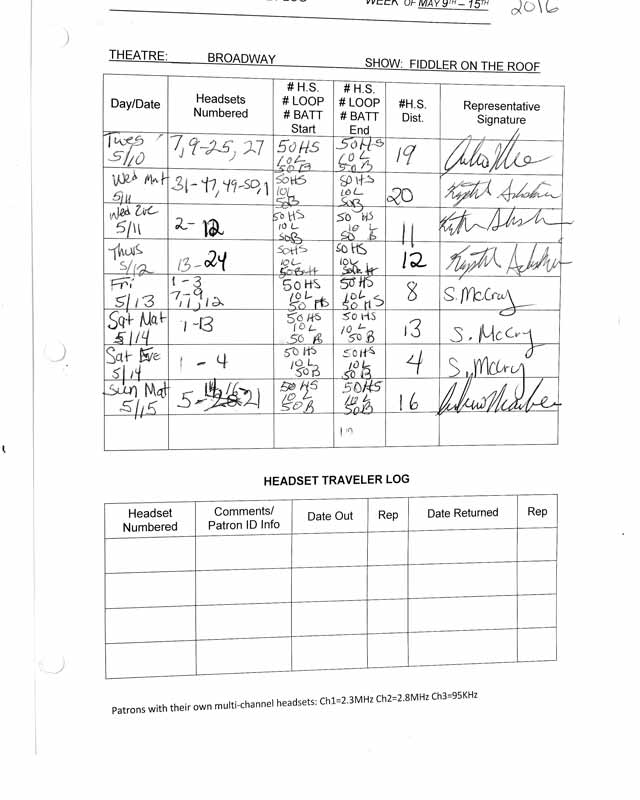 WEEK OF MAY 9TH – 15TH 2016
THEATRE: BROADWAY SHOW: FIDDLER ON THE ROOF
Day/Date Headsets Numbered # H.S. # LOOP # BATT Start # H.S. # LOOP # BATT End #H.S. Dist. Representative Signature
Tues 5/10 7, 9-25, 27 50HS 10L 50B 50HS 10L 50B 19
Wed Mat 5/11 31-47, 49-50, 1 50HS 10L 50B 50HS 10L 50B 20
Wed Eve 5/11 2-12 50HS 10L 50B 50 HS 10 L 50 B 11
Thurs 5/12 13-24 50HS 10L 50 HS 10L 12
Fri 5/13 1-3 7-9, 11, 12 50HS 10L 50 50HS 10L 50 8 S. McCray
Sat Mat 5/14 1-13 50HS 10L 50 B 50HS 10 L 50 B 13 S. McCray
Sat Eve 5/14 1-4 50 HS 10 L 50B 50HS 10 L 50 B 4 S. McCray
Sun Mat 5/15 5- 21 50 HS 10 L 50B 50HS 10 L 50B 16
HEADSET TRAVELER LOG
Headset Numbered Comments/ Patron ID Info Date Out Rep Date Returned Rep
Patrons with their own multi-channel headsets: Ch1=2.3MHz Ch2=2.8MHz Ch3=95KHz